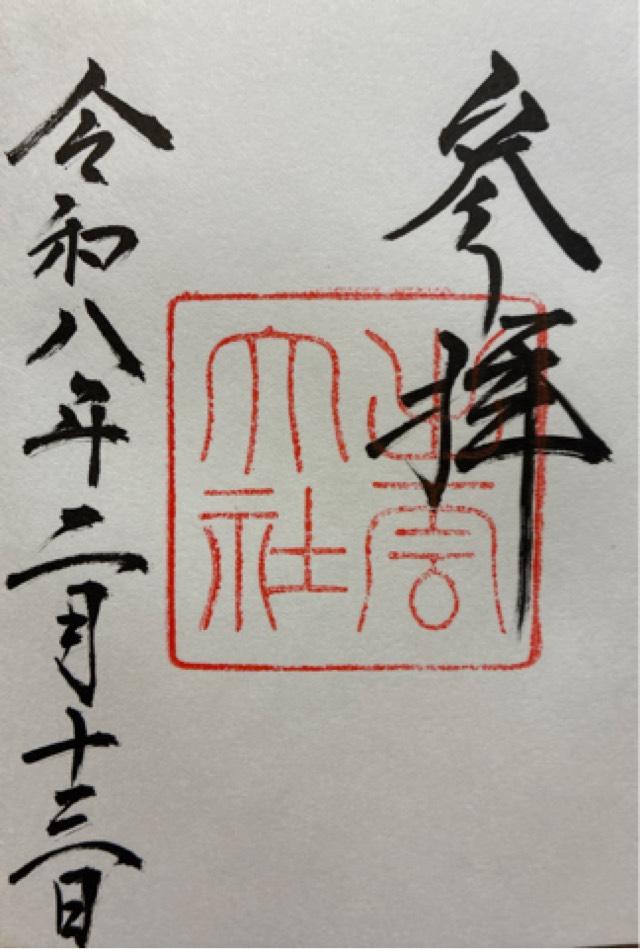 参拝
出雲
大社
令和八年二月十三日